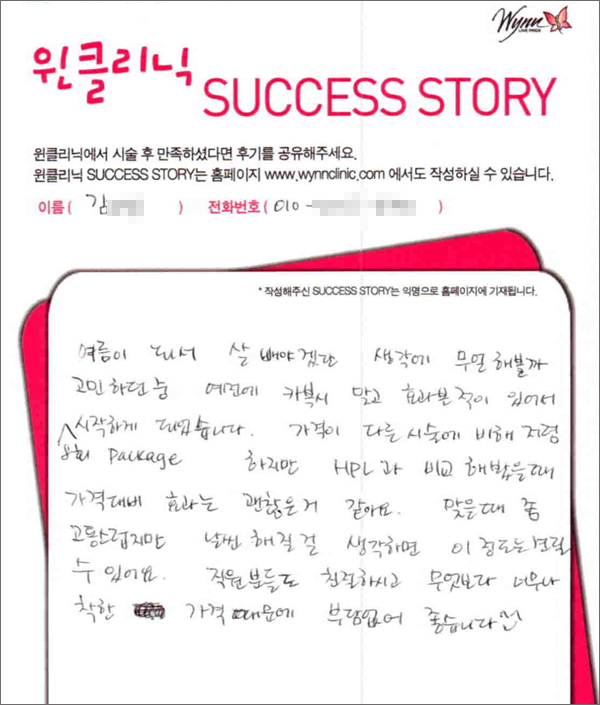 Wynn
LOVE MNGN
윈클리닉
SUCCESS STORY
윈클리닉에서 시술 후 만족하셨다면 후기를 공유해주세요.
윈클리닉 SUCCESS STORY는 홈페이지 www.wynnclinic.com 에서도 작성하실 수 있습니다.
이름 ( 김 ) 전화번호 ( 010 - )
* 작성해주신 SUCCESS STORY는 익명으로 홈페이지에 기재됩니다.
여름이 되서 살 빼야겠단 생각에 무얼 해볼까
고민하던중 예전에 카복시 맞고 효과본적이 있어서
시작하게 되었습니다. 가격이 다른시술에 비해 저렴
8회 Package 하지만 HPL과 비교해봤을때
가격대비 효과는 괜찮은거 같아요. 맞을때 좀
고통스럽지만 날씬해질걸 생각하면 이정도는 견딜
수 있어요. 직원분들도 친절하시고 무엇보다 너무나
착한 가격 때문에 부담없어 좋습니다